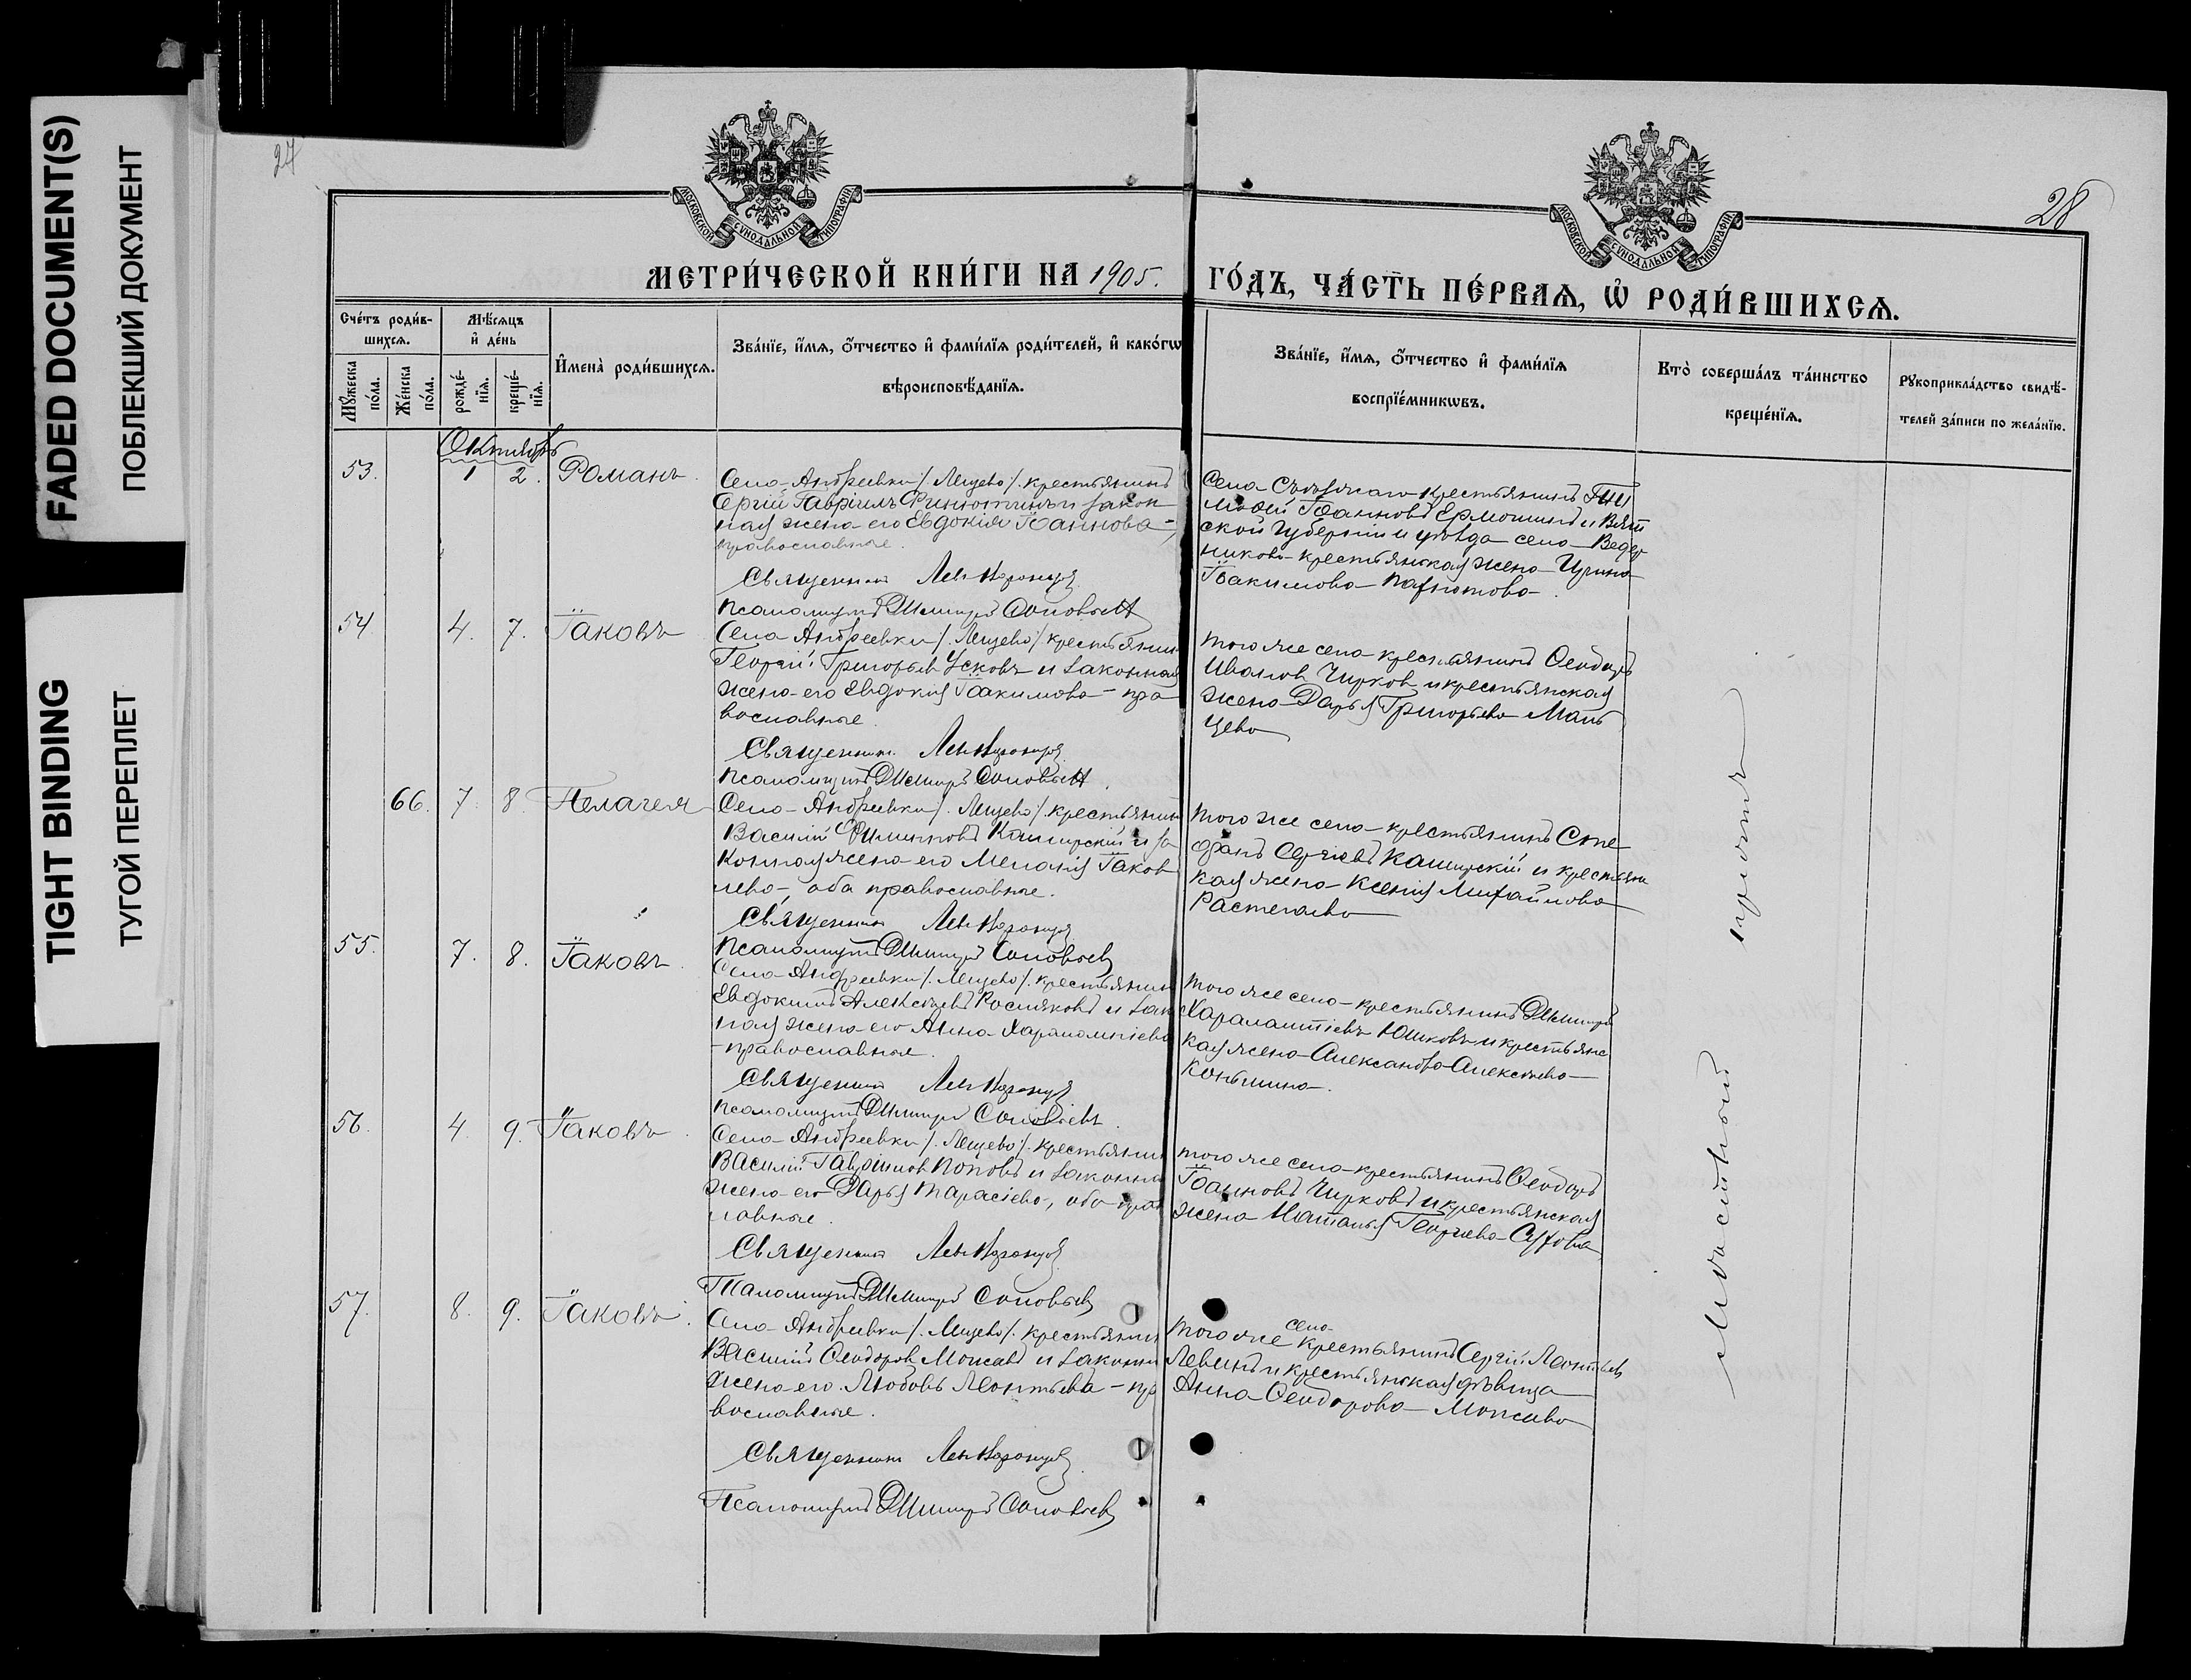 FADED DOCUMENT(S)
ПОБЛЕКШИЙ ДОКУМЕНТ
TIGHT BINDING
ТУГОЙ ПЕРЕПЛЕТ
27
28
МОСКОВСКОЙ СѴНОДАЛЬНОЙ ТИПОГРАФІИ
МОСКОВСКОЙ СѴНОДАЛЬНОЙ ТИПОГРАФІИ
МЕТРИ́ЧЕСКОЙ КНИ́ГИ НА 1905. ГО́ДЪ, ЧА́СТЬ ПЕ́РВАѦ, Ѡ҆ РОДИ́ВШИХСѦ.
Сче́тъ роди́в-
шихсѧ.
Мꙋ́жеска
по́ла.
Же́нска
по́ла.
Мѣ́сѧцъ
и҆ де́нь
рожде́-
нїѧ.
креще́-
нїѧ.
И҆мена̀ роди́вшихсѧ.
Зва́нїе, и҆́мѧ, ѻ҆́тчество и҆ фами́лїѧ роди́телей, и҆ како́гѡ
вѣроисповѣ́данїѧ.
Зва́нїе, и҆́мѧ, ѻ҆́тчество и҆ фами́лїѧ
воспрїе́мникѡвъ.
Кто̀ соверша́лъ та́инство
креще́нїѧ.
Рꙋкоприкла́дство свидѣ́-
телей за́писи по жела́нїю.
Октябрь
53. 1 2. Романъ.
Села Андреевки /. Лещево /. крестьянинъ
Сергій Гавріилъ и закон
ная жена его Евдокія Іоаннова -,
православные.
Священникъ Левъ
Псаломщикъ Димитрій Соловьевъ
Села крестьянинъ Ти
мофей Іоанновъ Ермошинъ и Вят
ской губерніи и уѣзда села Ведер
никова крестьянская жена Ирина
Іоакимова
54 4. 7. Іаковъ
Села Андреевки /. Лещево /. крестьянин
Георгій Григорьев Усковъ и законная
жена его Евдокія Іоакимова - пра
вославные.
Священникъ Левъ
Псаломщикъ Димитрій Соловьевъ.
того же села крестьянинъ Ѳеодоръ
Иванов Чирков и крестьянская
жена Дарья Григорьева Маль
цева
66. 7. 8 Пелагея
Села Андреевки /. Лещево /. крестьянин
Василій Филипповъ Каширскій и за
конная жена его Меланія Іаков
лева, оба православные.
Священникъ Левъ
Псаломщикъ Димитрій Соловьевъ
того же села крестьянинъ Сте
фанъ Сергіевъ Каширскій и крестьянс
кая жена Ксенія Михайлова
Растегаева
55. 7. 8. Іаковъ.
Села Андреевки /. Лещево /. крестьянин
Евдокимъ Алексѣевъ Росляковъ и зак
ная жена его Анна Харалампіева
- православные.
Священникъ Левъ
Псаломщикъ Димитрій Соловьевъ.
того же села крестьянинъ Димитрій
Харалампіевъ Юшковъ и крестьянс
кая жена Александра Алексѣева
Коньшина.
56. 4. 9. Іаковъ.
Села Андреевки /. Лещево /. крестьянин
Василій Гавріилов Поповъ и законна
жена его Дарья Тарасіева, оба прав
лавные.
Священникъ Левъ
Псаломщикъ Димитрій Соловьевъ
того же села крестьянинъ Ѳеодоръ
Іоанновъ Чирковъ и крестьянская
жена Наталья Георгіева
57. 8. 9. Іаковъ.
Села Андреевки /. Лещево /. крестьянин
Василій Ѳеодоров Мопсевъ и законн
жена его Любовь Леонтьева - пра
вославные.
Священникъ Левъ
Псаломщикъ Димитрій Соловьевъ
того же села крестьянинъ Сергій Леонтьев
Левинъ и крестьянская дѣвица
Анна Ѳеодорова Мопсева
Мѣстный причтъ